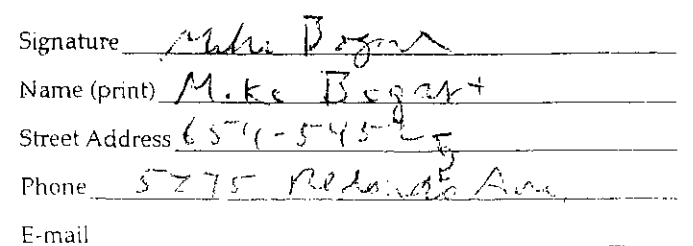 Signature Mike Bogart
Name (print) Mike Bogart
Street Address 654-5452
Phone 5775 Redondo Ave
E-mail